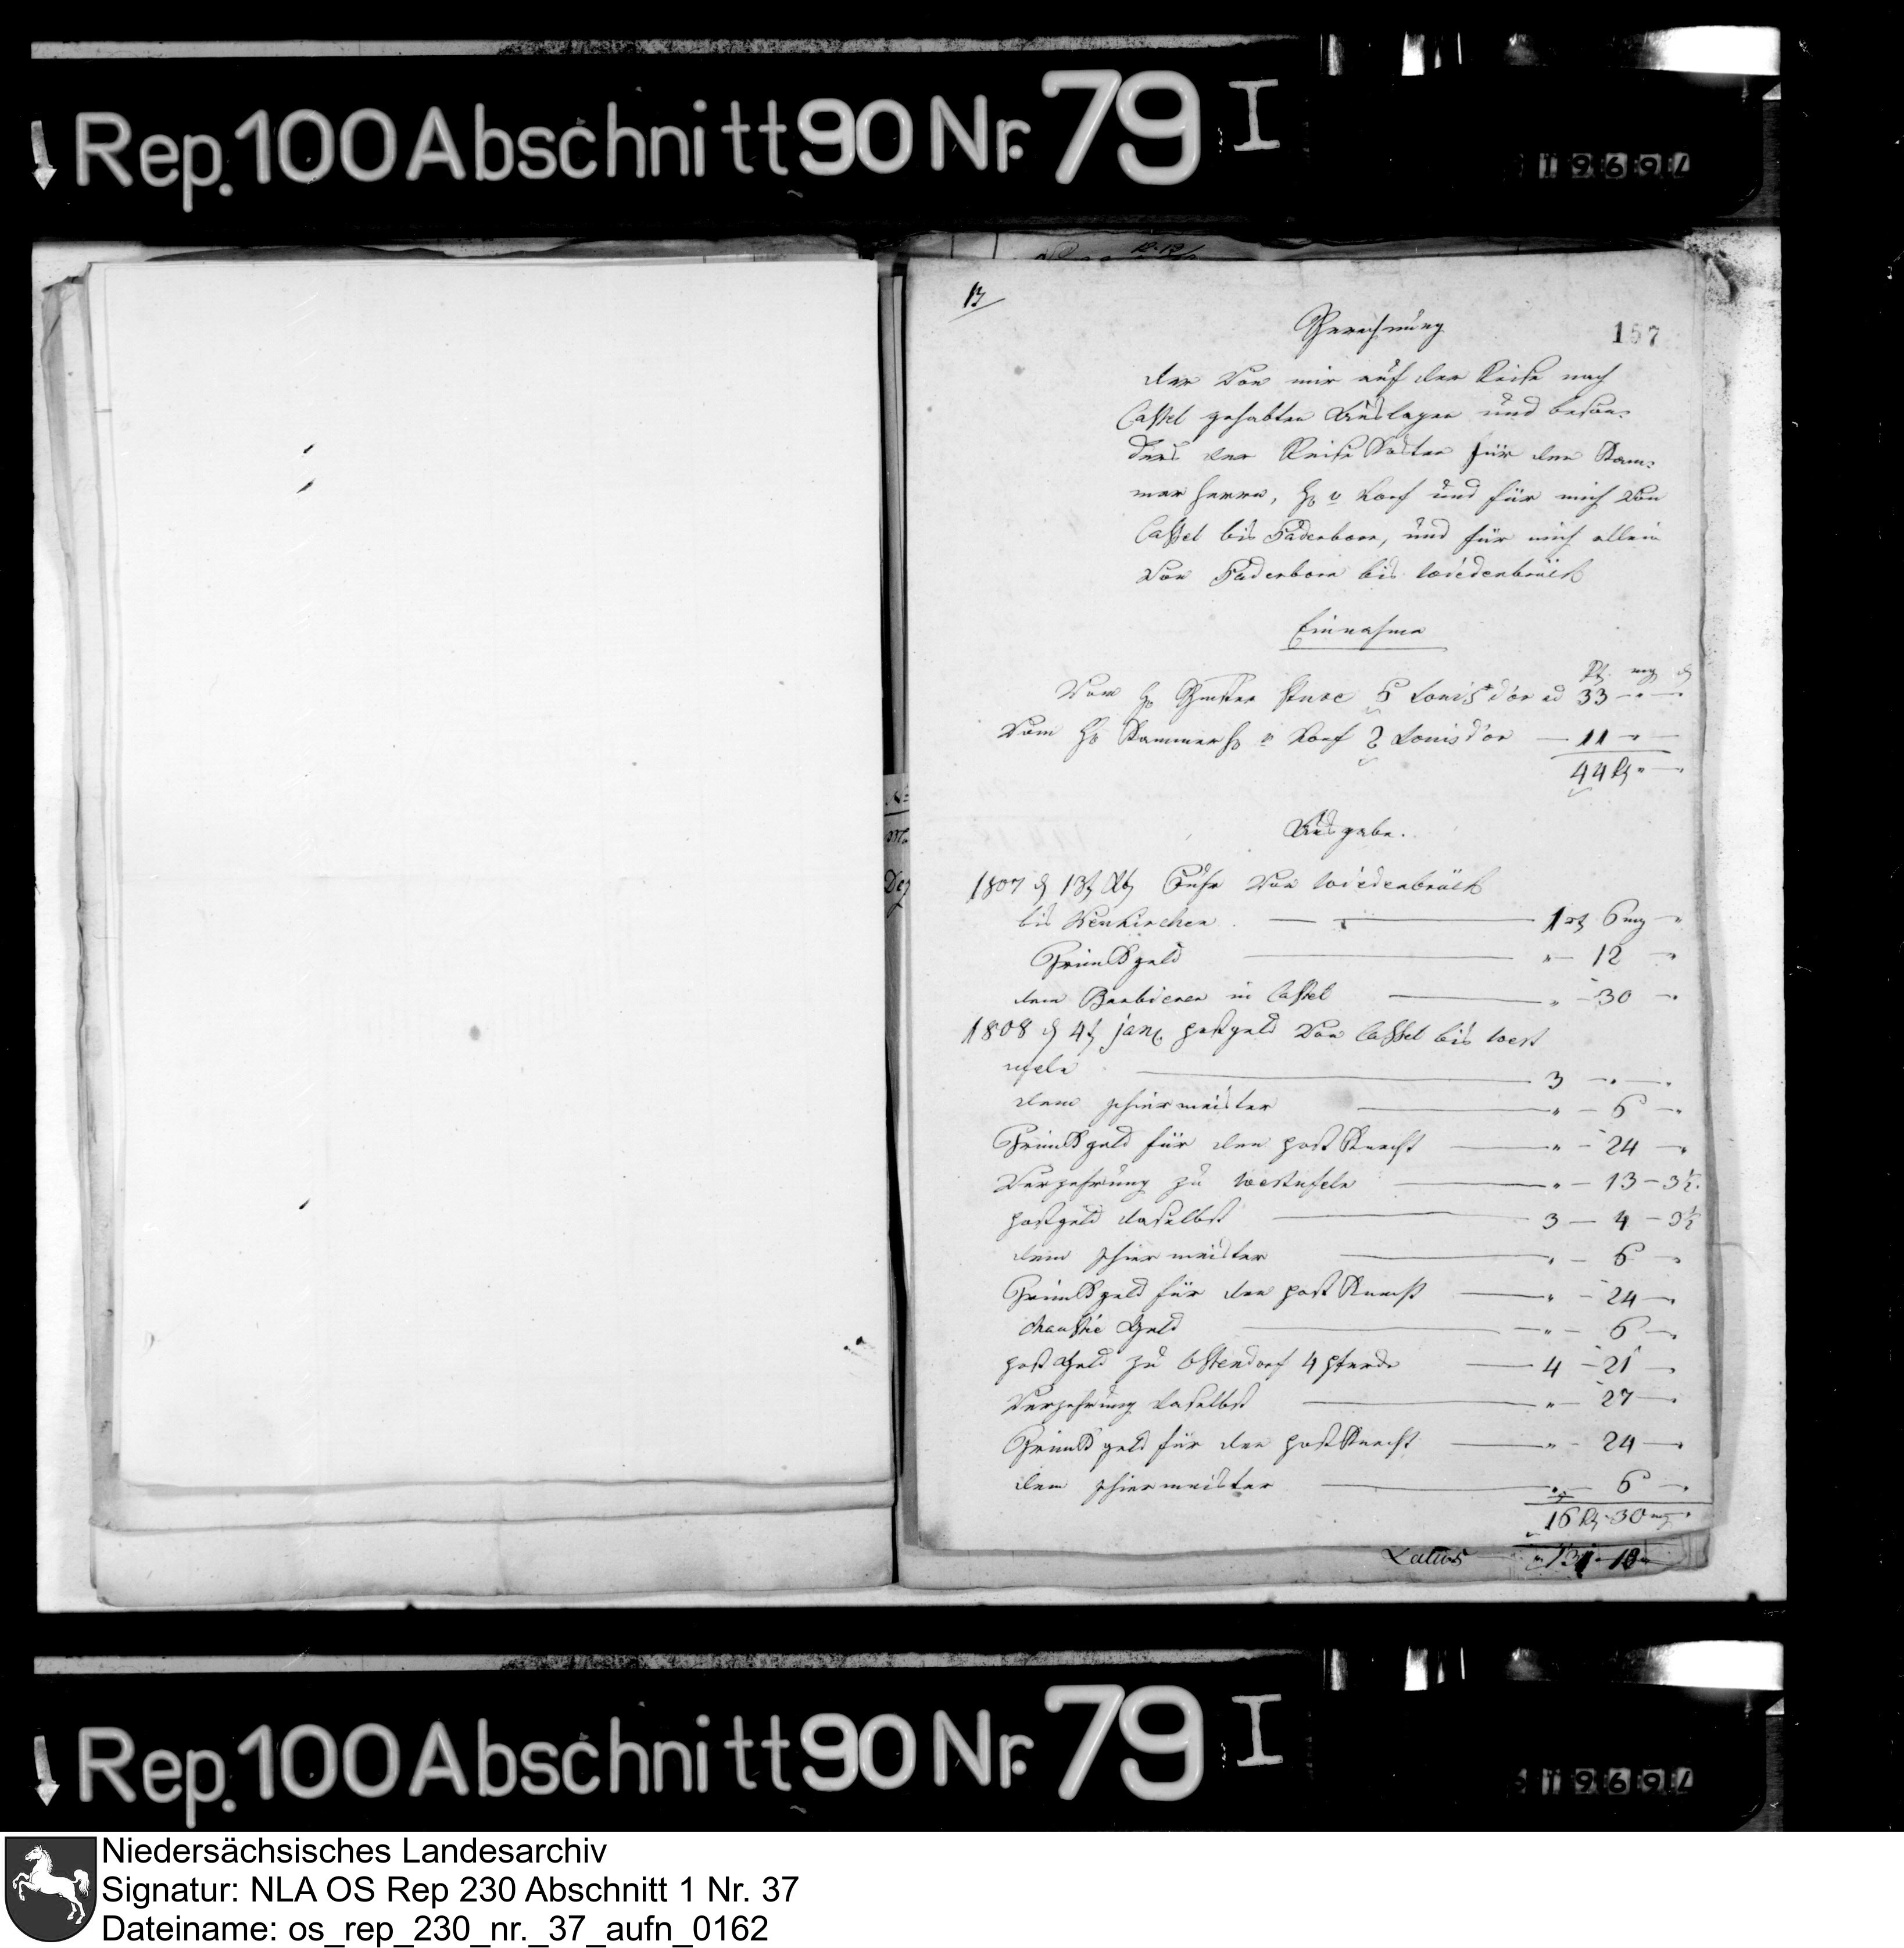 Rep. 100 Abschnitt 90 Nr. 79 I
1969
17
Berechnung
157
der von mir auf der Reise nach
Cassel gehabten Auslagen und beson-
ders der Reise Kosten für den Kam-
mer Herrn, H v Korf und für mich von
Cassel bis Paderborn, und für mich allein
von Paderborn bis Wiedenbrück
Einnahme
Rt mg d
Vom H 6 Louisd'or ad 33 - " - "
Vom H Kammerh v Korf 2 Louisd'or - 11 - " -
44 Rt " - "
Ausgabe.
1807 d 13t Xb Fuhr von Wiedenbrück
bis Neukirchen - 1 rt 6 mg - "
Trinkgeld " - 12 - "
dem Barbierer in Cassel " - 30 - "
1808 d 4t Jan. postgeld von Cassel bis West
ufeln 3 - " - "
dem schirmeister " - 6 - "
Trinkgeld für den post Knecht " - 24 - "
Verzehrung zu Westufeln " - 13 - 3½
postgeld daselbst 3 - 4 - 3½
dem schirmeister " - 6 - "
Trinkgeld für den post Knecht " - 24 - "
chaussée Geld " - 6 - "
post Geld zu Ossendorf 4 pferde 4 - 21 - "
Verzehrung daselbst " - 27 - "
Trinkgeld für den post Knecht " - 24 - "
dem schirmeister " - 6 - "
16 Rt - 30 mg "
Latus
Rep. 100 Abschnitt 90 Nr. 79 I
1969
Niedersächsisches Landesarchiv
Signatur: NLA OS Rep 230 Abschnitt 1 Nr. 37
Dateiname: os_rep_230_nr._37_aufn_0162